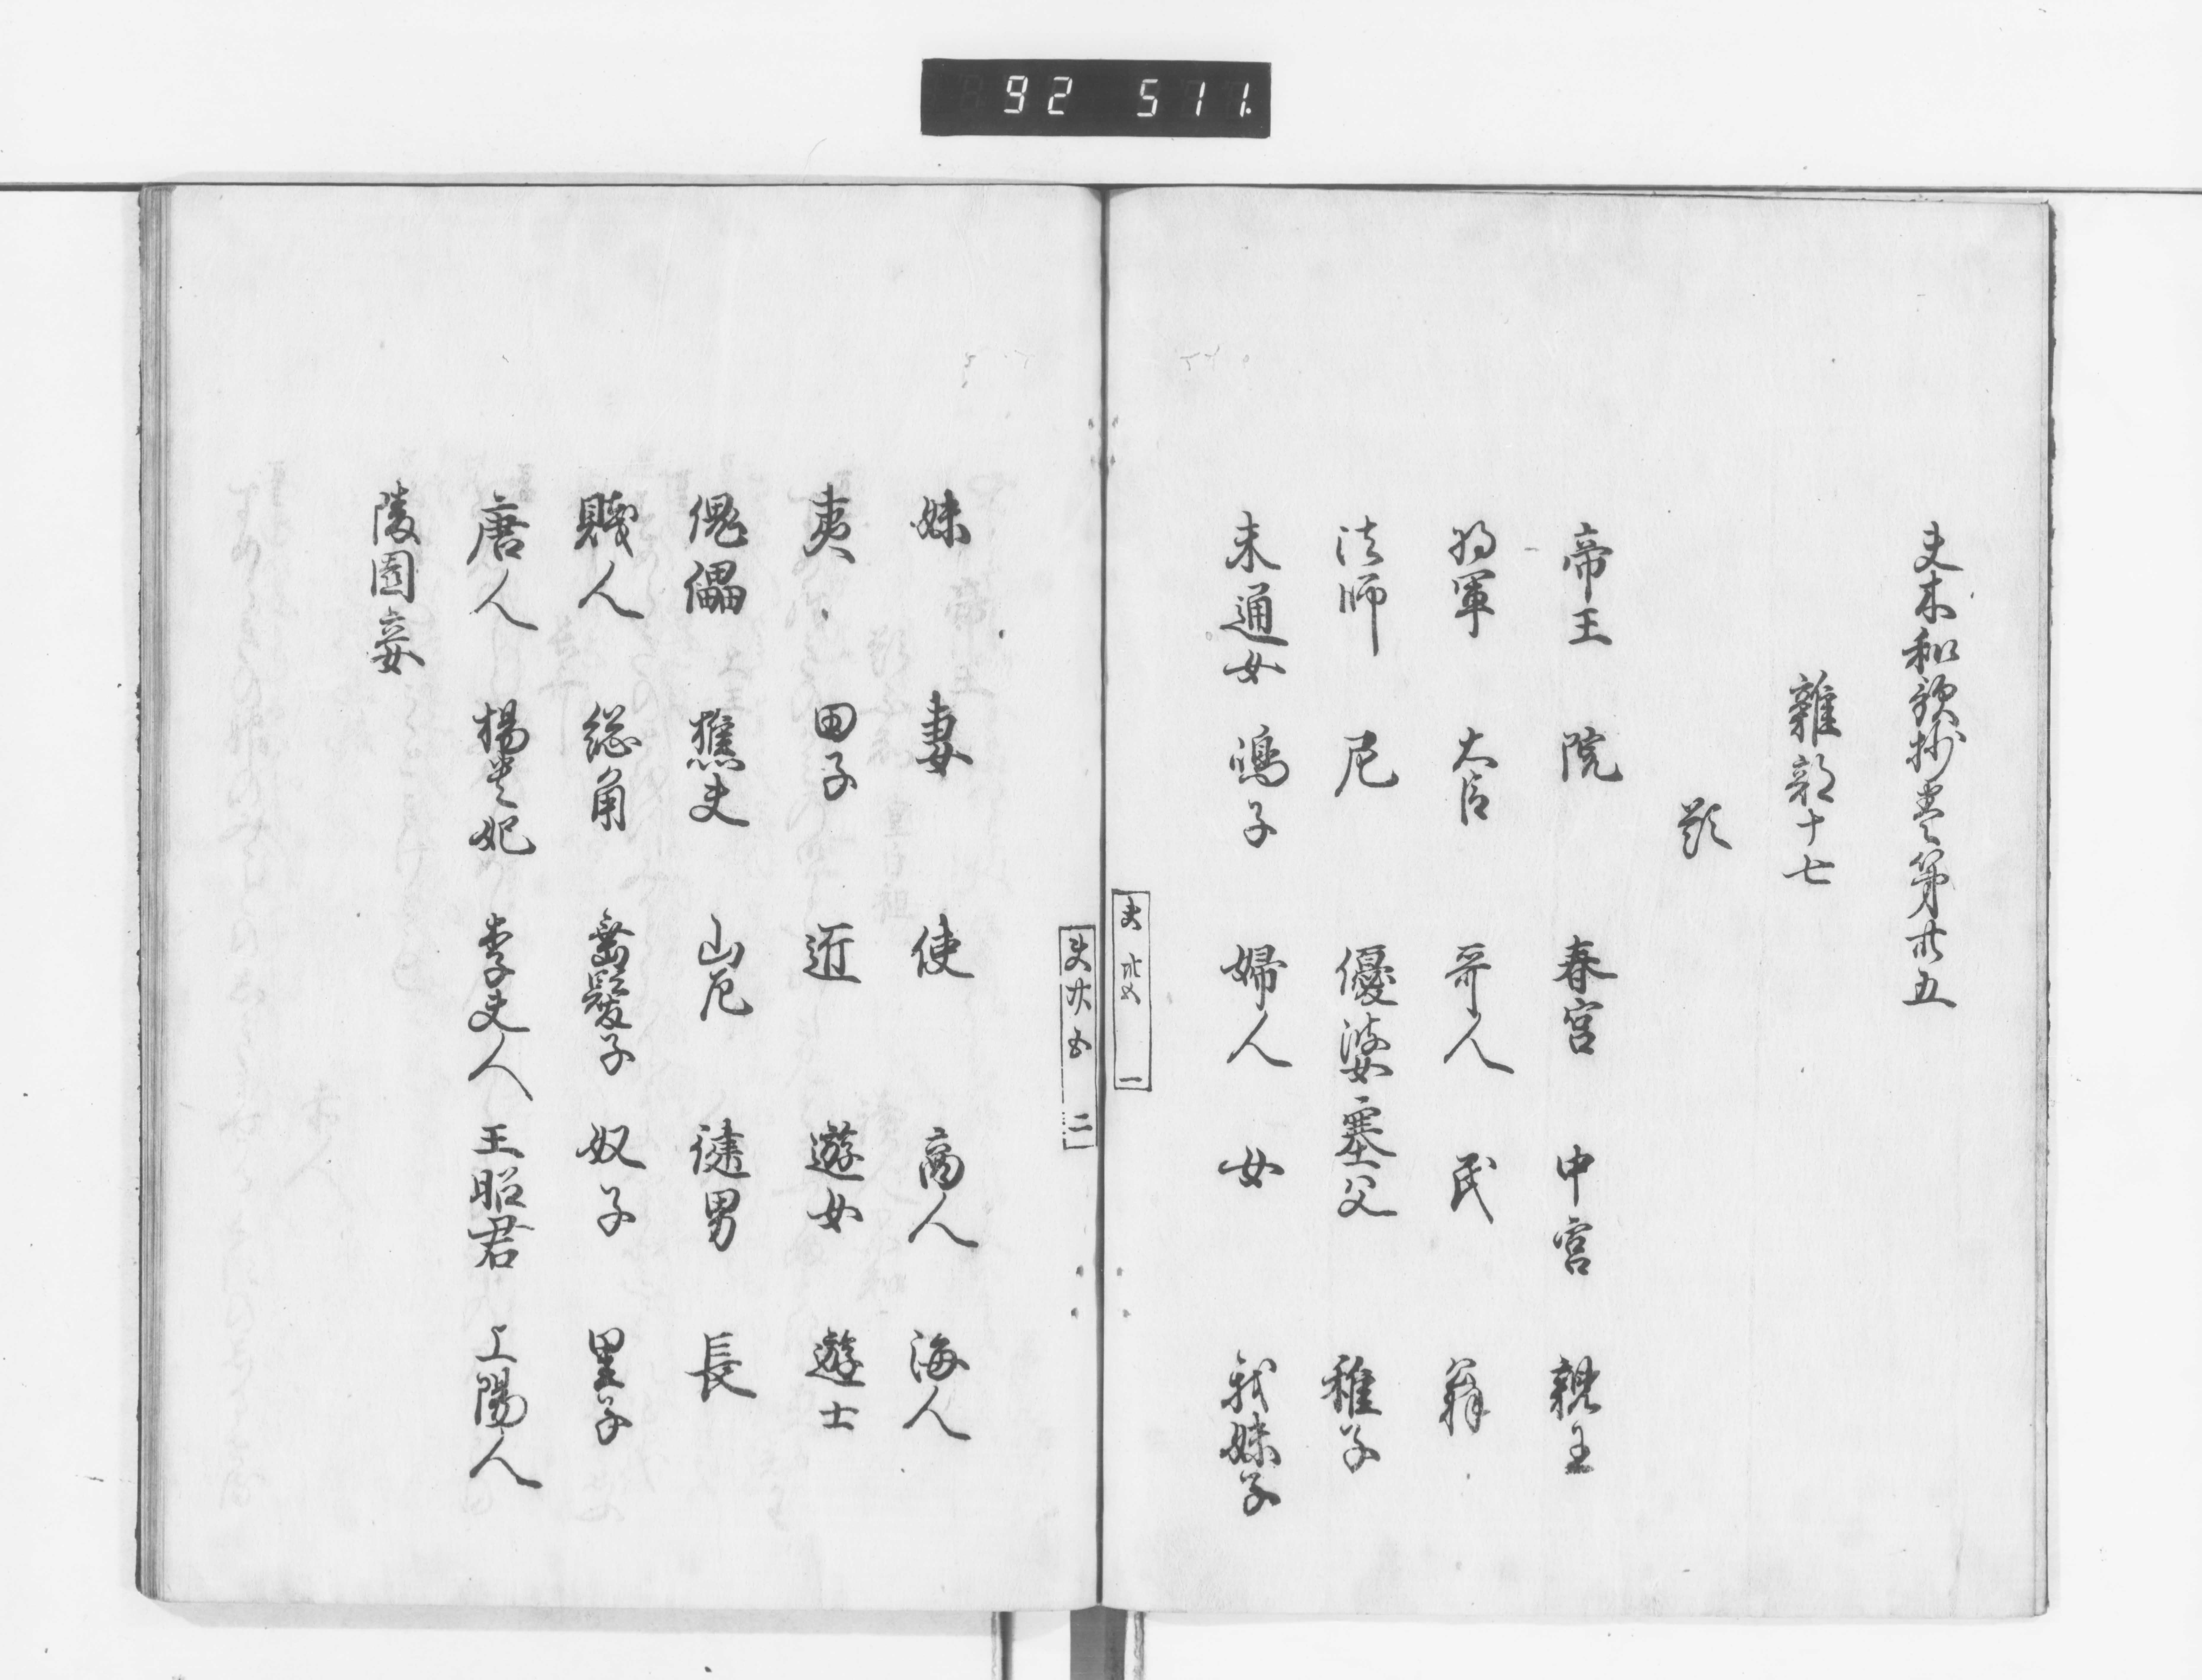 92 511.
夫木和歌抄巻第卅五
雜部十七
題
帝王 院 春宮 中宮 親王
将軍 大臣 哥人 民 翁
法師 尼 優婆塞 父 稚子
未通女 鳴子 婦人 女 我妹子
夫 卅五 一
夫卅五 二
妹 妻 使 商人 海人
夷 田子 近 遊女 遊士
傀儡 樵夫 山庀 健男 長
賤人 総角 髫髪子 奴子 里子
唐人 楊貴妃 李夫人 王昭君 上陽人
陵園妾